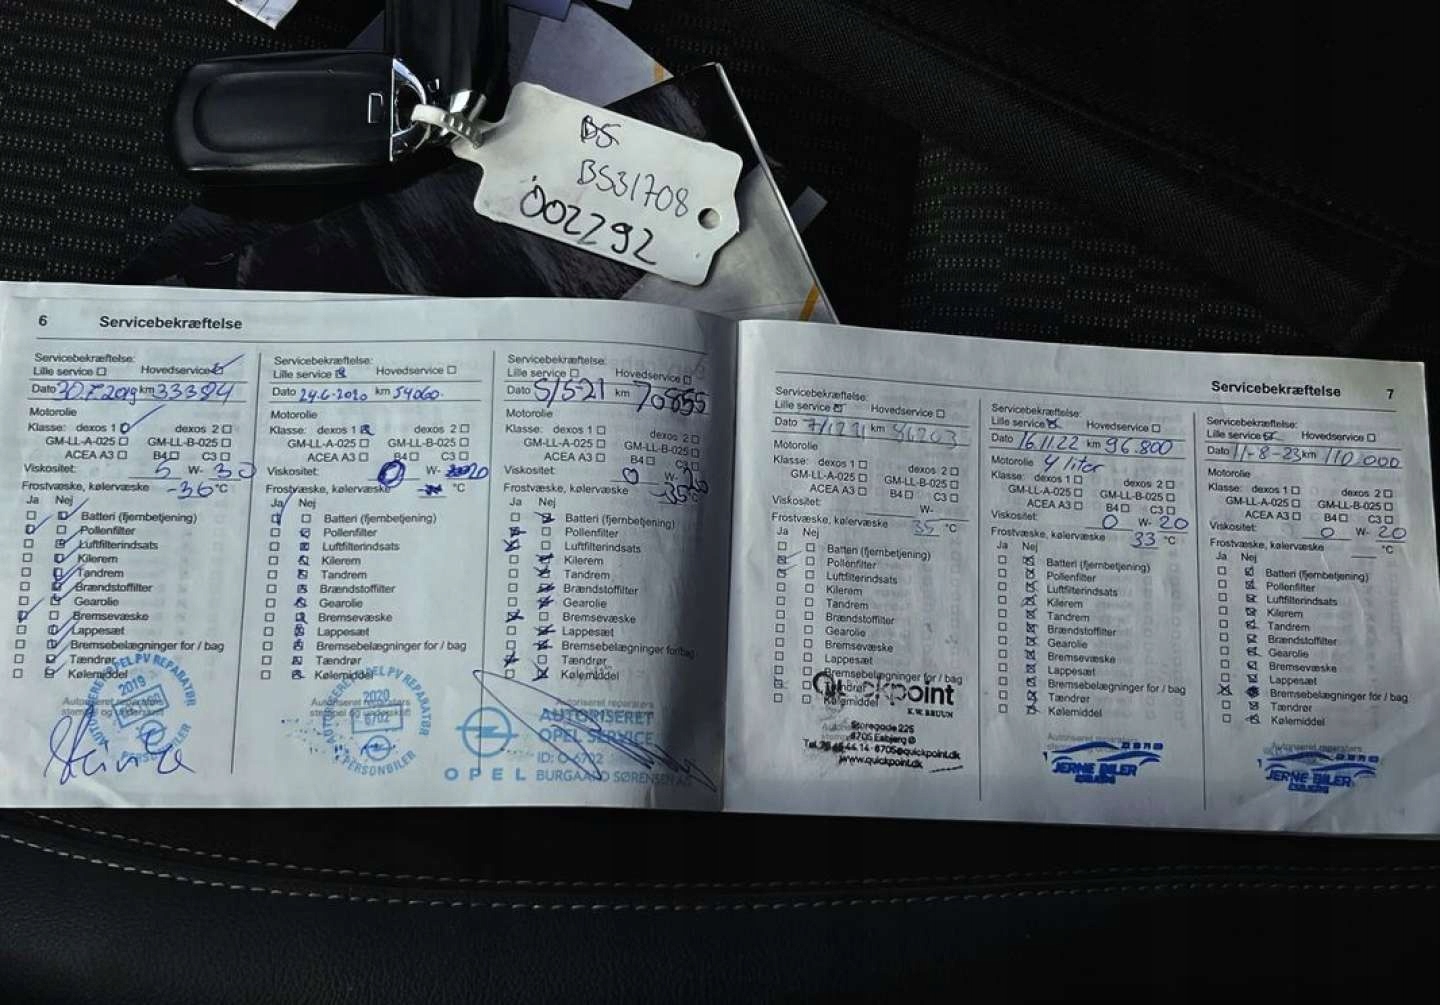 BS
BS31708
002292
6 Servicebekræftelse
Servicebekræftelse:
Lille service Hovedservice
Dato 30.7.2019 km 33384
Motorolie
Klasse: dexos 1 dexos 2
GM-LL-A-025 GM-LL-B-025
ACEA A3 B4 C3
Viskositet: 5 W- 30
Frostvæske, kølervæske -36 °C
Ja Nej
Batteri (fjernbetjening)
Pollenfilter
Luftfilterindsats
Kilerem
Tandrem
Brændstoffilter
Gearolie
Bremsevæske
Lappesæt
Bremsebelægninger for / bag
Tændrør
Kølemiddel
2019
Servicebekræftelse:
Lille service Hovedservice
Dato 24.6.2020 km 54060.
Motorolie
Klasse: dexos 1 dexos 2
GM-LL-A-025 GM-LL-B-025
ACEA A3 B4 C3
Viskositet: 0 W- 20
Frostvæske, kølervæske °C
Ja Nej
Batteri (fjernbetjening)
Pollenfilter
Luftfilterindsats
Kilerem
Tandrem
Brændstoffilter
Gearolie
Bremsevæske
Lappesæt
Bremsebelægninger for / bag
Tændrør
Kølemiddel
2020
6702
PERSONBILER
Servicebekræftelse:
Lille service Hovedservice
Dato 5/5-21 km 70855
Motorolie
Klasse: dexos 1 dexos 2
GM-LL-A-025 GM-LL-B-025
ACEA A3 B4 C3
Viskositet: 0 W- 20
Frostvæske, kølervæske -35 °C
Ja Nej
Batteri (fjernbetjening)
Pollenfilter
Luftfilterindsats
Kilerem
Tandrem
Brændstoffilter
Gearolie
Bremsevæske
Lappesæt
Bremsebelægninger for / bag
Tændrør
Kølemiddel
AUTORISERET
OPEL SERVICE
ID: O-6702
OPEL BURGAARD SØRENSEN
Servicebekræftelse 7
Servicebekræftelse:
Lille service Hovedservice
Dato km
Motorolie
Klasse: dexos 1 dexos 2
GM-LL-A-025 GM-LL-B-025
ACEA A3 B4 C3
Viskositet: W-
Frostvæske, kølervæske 35 °C
Ja Nej
Batteri (fjernbetjening)
Pollenfilter
Luftfilterindsats
Kilerem
Tandrem
Brændstoffilter
Gearolie
Bremsevæske
Lappesæt
Bremsebelægninger for / bag
Tændrør
Kølemiddel
Quickpoint
K.W. BRUUN
Storegade 225
6705 Esbjerg Ø
6705@quickpoint.dk
www.quickpoint.dk
Servicebekræftelse:
Lille service Hovedservice
Dato 16.11.22 km 96.800
Motorolie 4 liter
Klasse: dexos 1 dexos 2
GM-LL-A-025 GM-LL-B-025
ACEA A3 B4 C3
Viskositet: 0 W- 20
Frostvæske, kølervæske 33 °C
Ja Nej
Batteri (fjernbetjening)
Pollenfilter
Luftfilterindsats
Kilerem
Tandrem
Brændstoffilter
Gearolie
Bremsevæske
Lappesæt
Bremsebelægninger for / bag
Tændrør
Kølemiddel
JERNE BILER
ESBJERG
Servicebekræftelse:
Lille service Hovedservice
Dato 11-8-23 km 110.000
Motorolie
Klasse: dexos 1 dexos 2
GM-LL-A-025 GM-LL-B-025
ACEA A3 B4 C3
Viskositet: 0 W- 20
Frostvæske, kølervæske °C
Ja Nej
Batteri (fjernbetjening)
Pollenfilter
Luftfilterindsats
Kilerem
Tandrem
Brændstoffilter
Gearolie
Bremsevæske
Lappesæt
Bremsebelægninger for / bag
Tændrør
Kølemiddel
JERNE BILER
ESBJERG